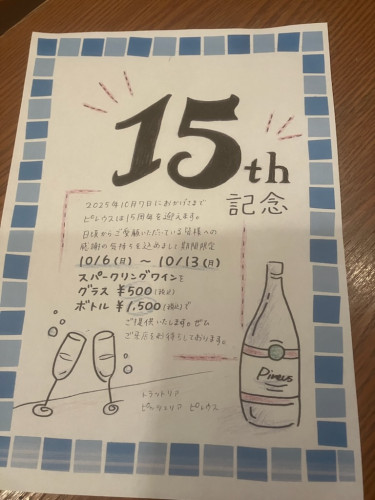 15th
記念
2025年10月7日におかげさまで
ピレウスは15周年を迎えます。
日頃からご愛顧いただいている皆様への
感謝の気持ちを込めまして期間限定
10/6(月) ～ 10/13(月)
スパークリングワインを
グラス ¥500(税込)
ボトル ¥1,500(税込)で
ご提供いたします。ぜひ
ご来店をお待ちしております。
トラットリア
ピッツェリア ピレウス